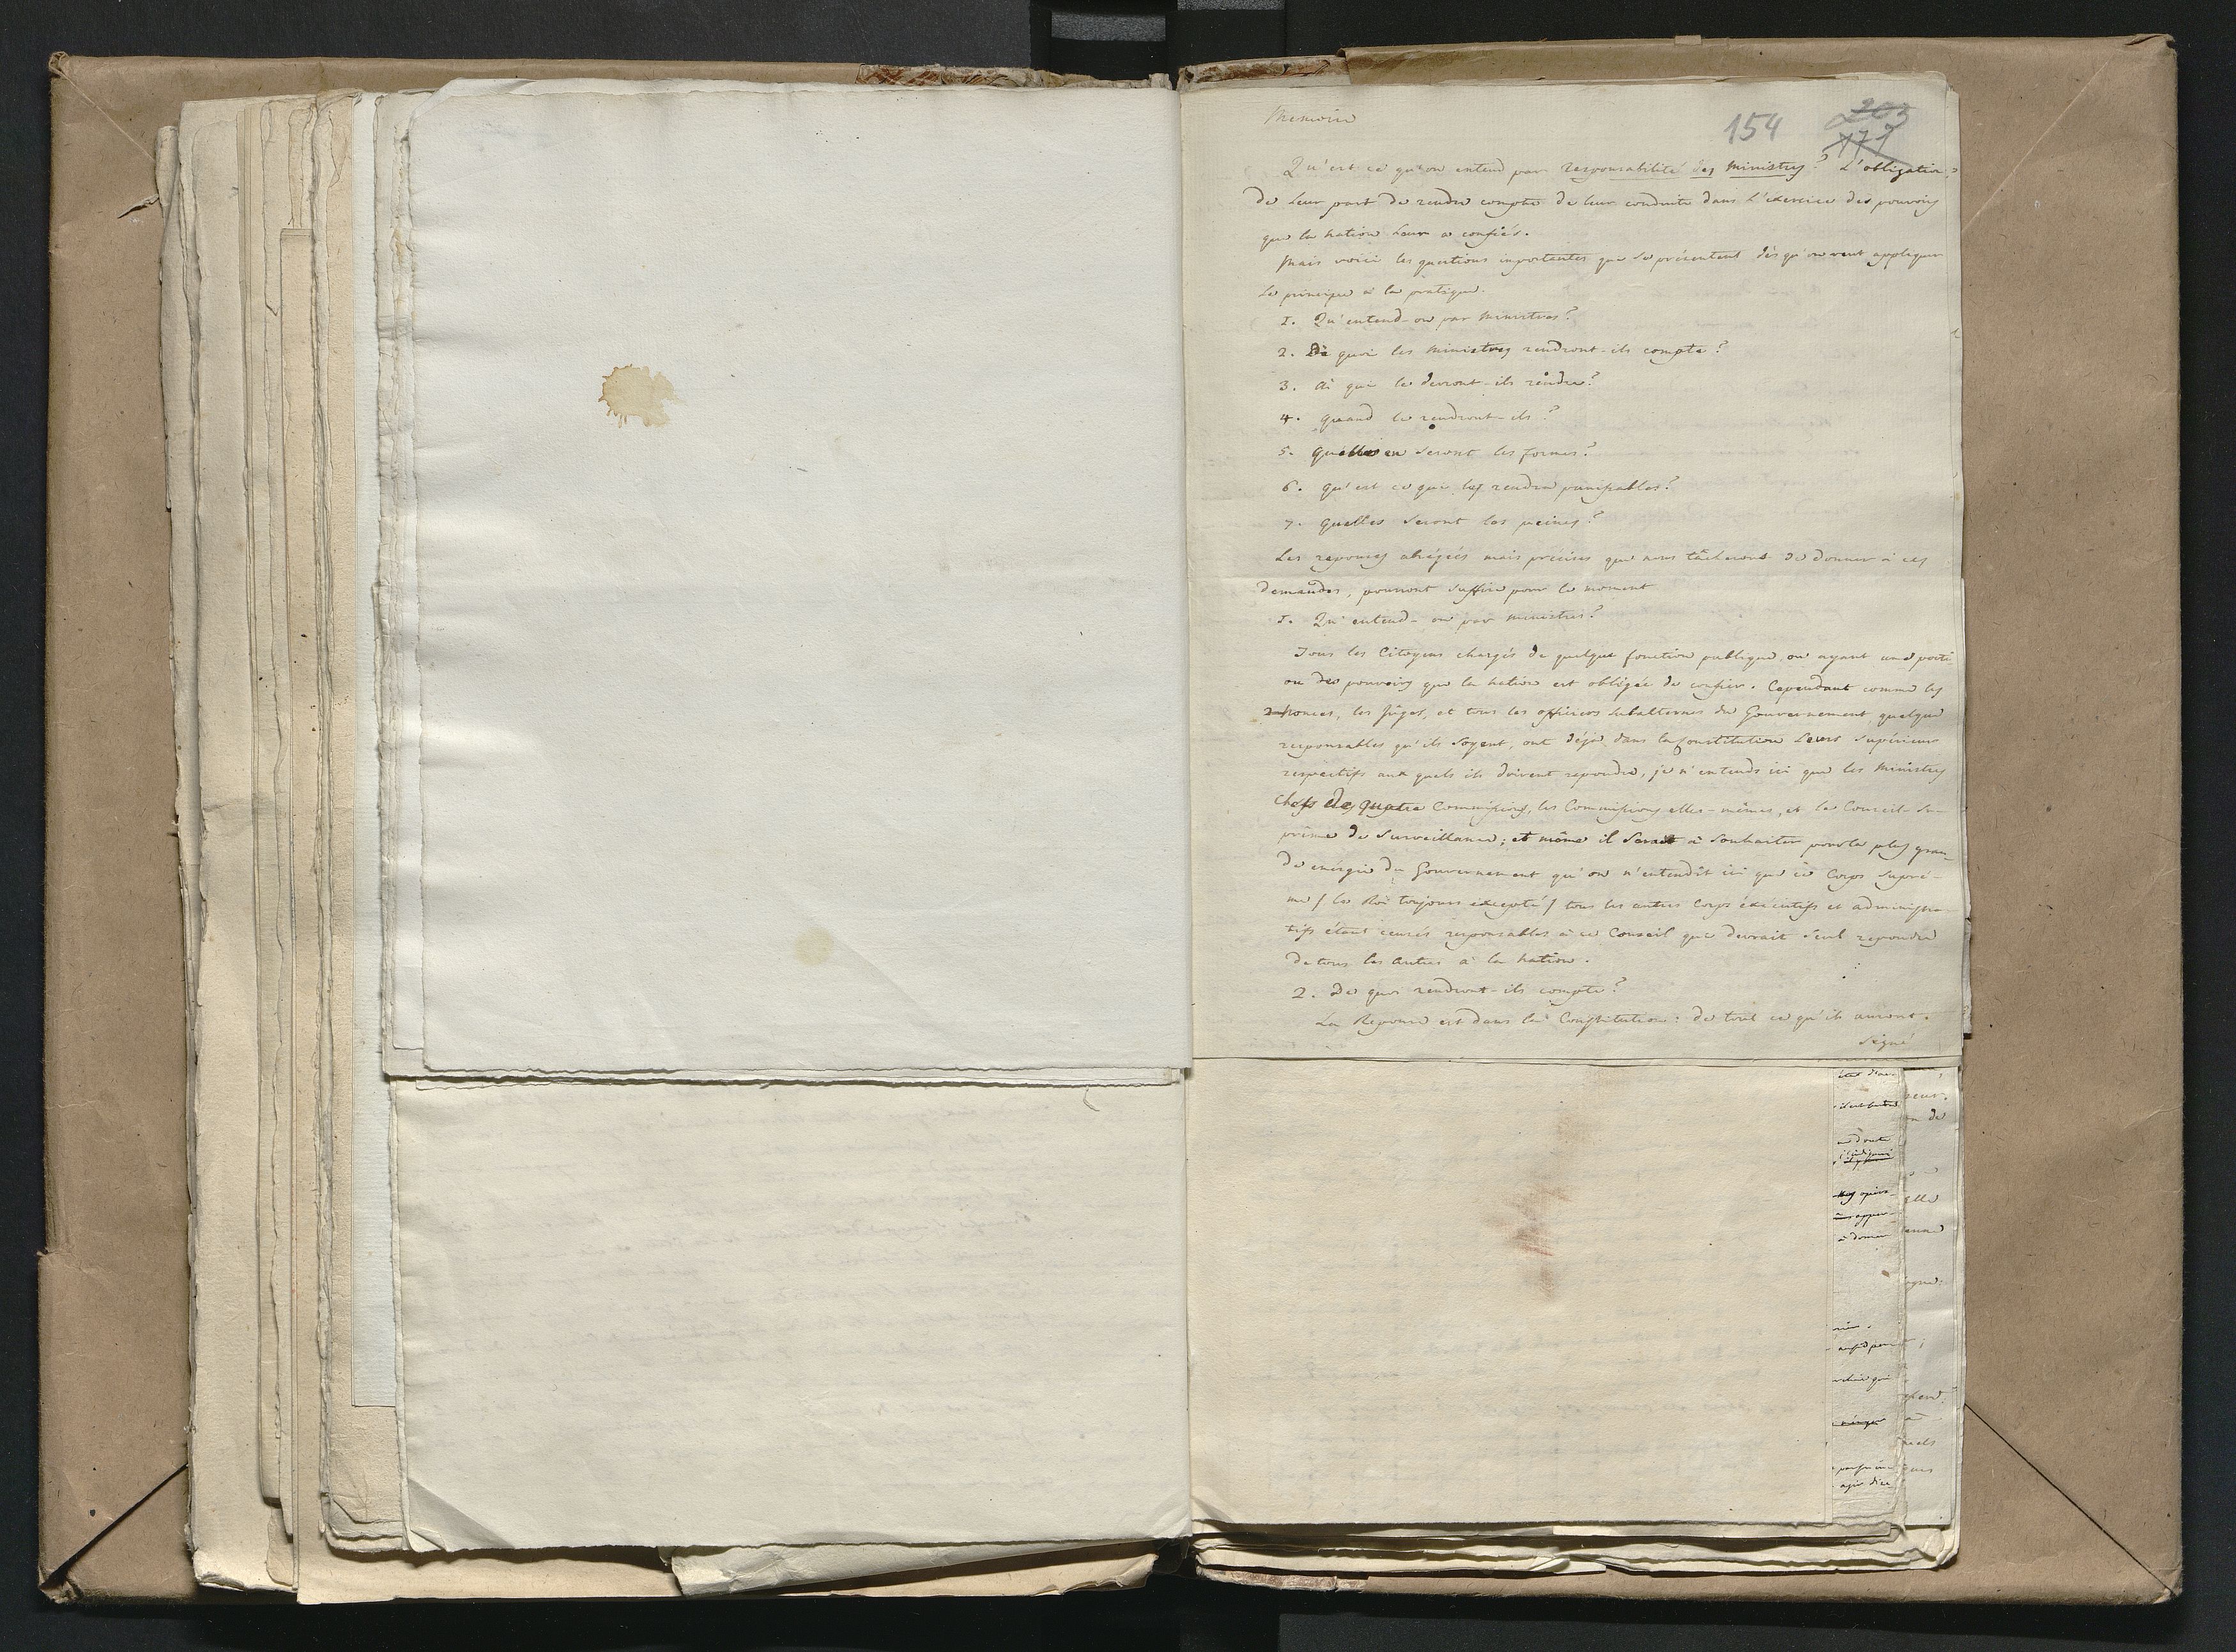 Memoire
154
203
177
Qu'est ce qu'on entend par responsabilité des ministres? L'obligation
de leur part de rendre compte de leur conduite dans l'exercice des pouvoirs
que la nation leur a confiés.
Mais voici les questions importantes qui se présentent dès qu'on veut appliquer
le principe à la pratique.
1. Qu'entend-on par ministres?
2. De quoi les ministres rendront-ils compte?
3. à qui le devront-ils rendre?
4. quand le rendront-ils?
5. quelles en seront les formes?
6. qu'est ce qui les rendra punissables?
7. quelles seront les peines?
Les reponses abrégées mais precises que nous tâcherons de donner à ces
demandes, pourront suffire pour le moment
1. Qu'entend-on par ministres?
Tous les Citoyens chargés de quelque fonction publique ou ayant une porti-
on des pouvoirs que la nation est obligée de confier. Cependant comme les
nonces, les juges, et tous les officiers subalternes du Gouvernement, quelque
responsables qu'ils soyent, ont déjà dans la Constitution leurs supérieurs
respectifs aux quels ils doivent repondre, je n'entends ici que les ministres
chefs des quatre Commissions, les Commissions elles-mêmes, et le Conseil-su-
prême de Surveillance; et même il serait à souhaiter pour la plus gran-
de énergie du Gouvernement qu'on n'entendît ici que ce Corps suprê-
me / le Roi toujours excepté / tous les autres Corps éxécutifs et administra-
tifs étant censés responsables à ce Conseil qui devrait seul repondre
de tous les autres à la nation.
2. De quoi rendront-ils compte?
La Reponse est dans la Constitution: de tout ce qu'ils auront.
signé
à donner
agir dire
on de
elle